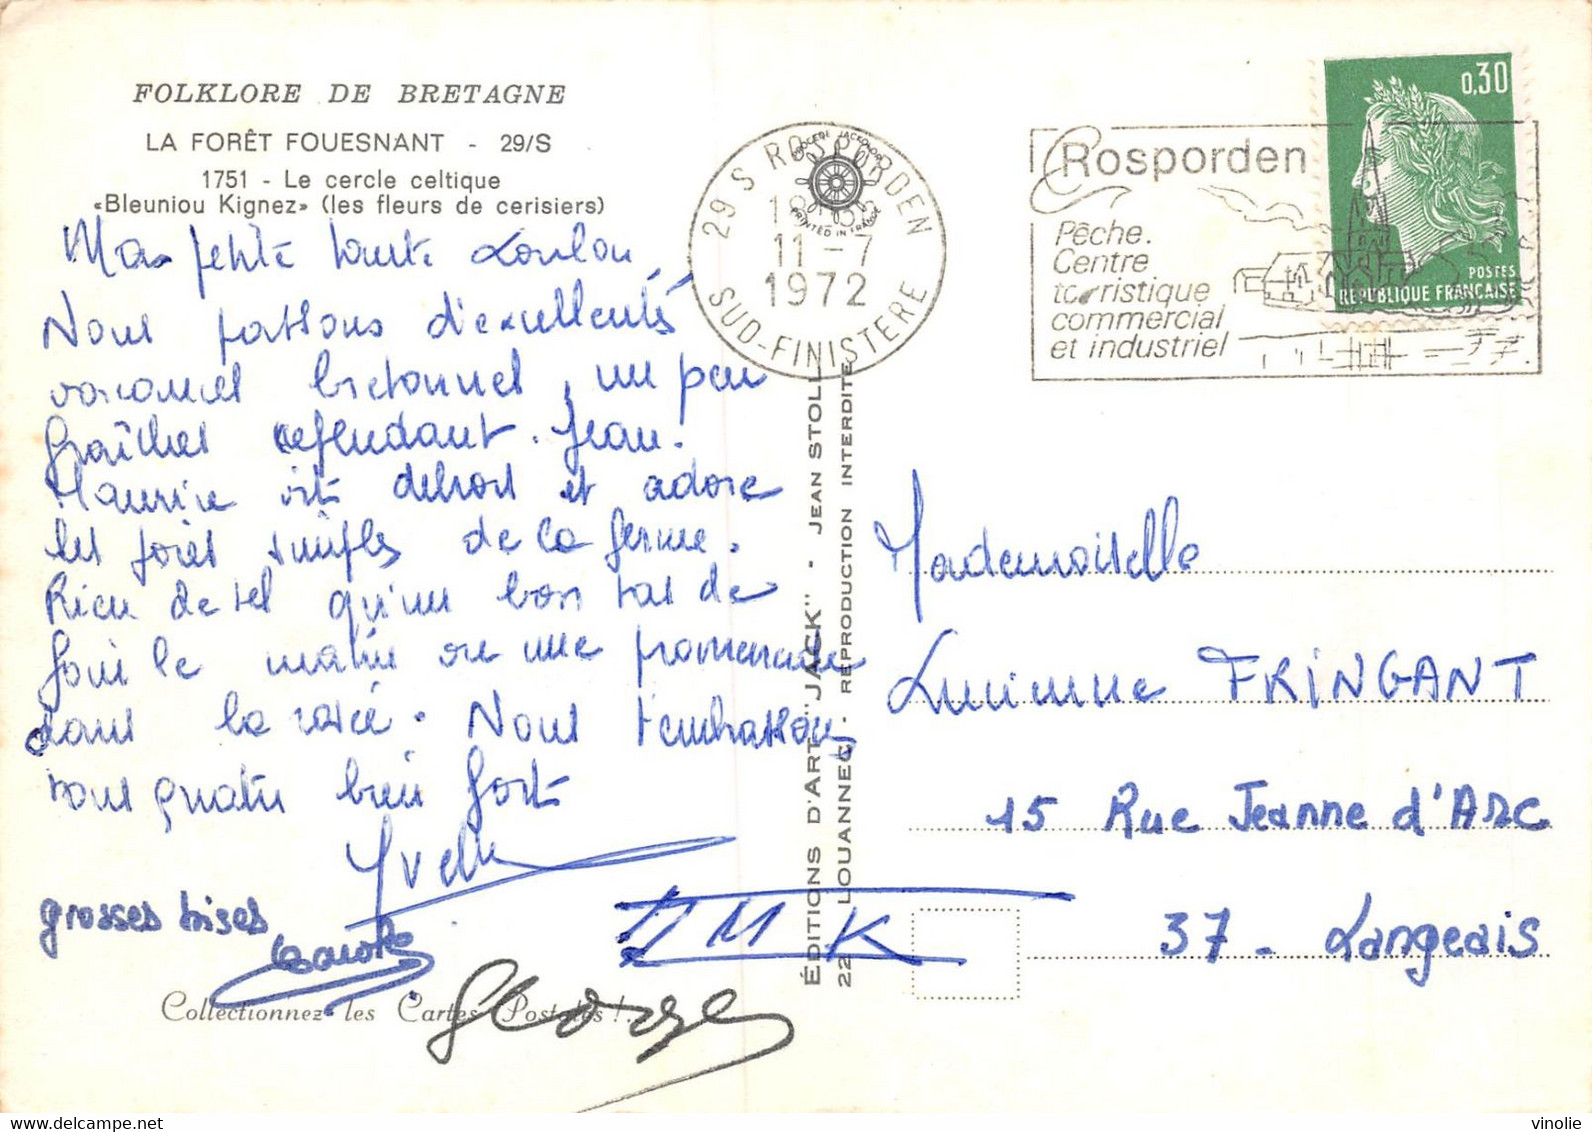 FOLKLORE DE BRETAGNE
LA FORÊT FOUESNANT - 29/S
1751 - Le cercle celtique
«Bleuniou Kignez» (les fleurs de cerisiers)
Ma petite toute Loulou
Nous passons d'excellentes
vacances bretonnes, un peu
fraîches cependant. Jean.
Maurice est dehors et adore
les joies simples de la ferme.
Rien de tel qu'un bon tas de
foin le matin ou une promenade
dans la rosée. Nous t'embrassons
tous quatre bien fort
Yvette
grosses bises
Carole
JMK
George
Collectionnez les Cartes Postales !..
ÉDITIONS D'ART "JACK" - JEAN STOLL
22 LOUANNEC - REPRODUCTION INTERDITE
PROCÉDÉ JACKOLOR
PRINTED IN FRANCE
29 S ROSPORDEN
11-7
1972
SUD-FINISTERE
Rosporden
Pêche.
Centre
touristique
commercial
et industriel
0,30
POSTES
REPUBLIQUE FRANÇAISE
Mademoiselle
Lucienne FRINGANT
15 Rue Jeanne d'Arc
37 - Langeais
vinolie